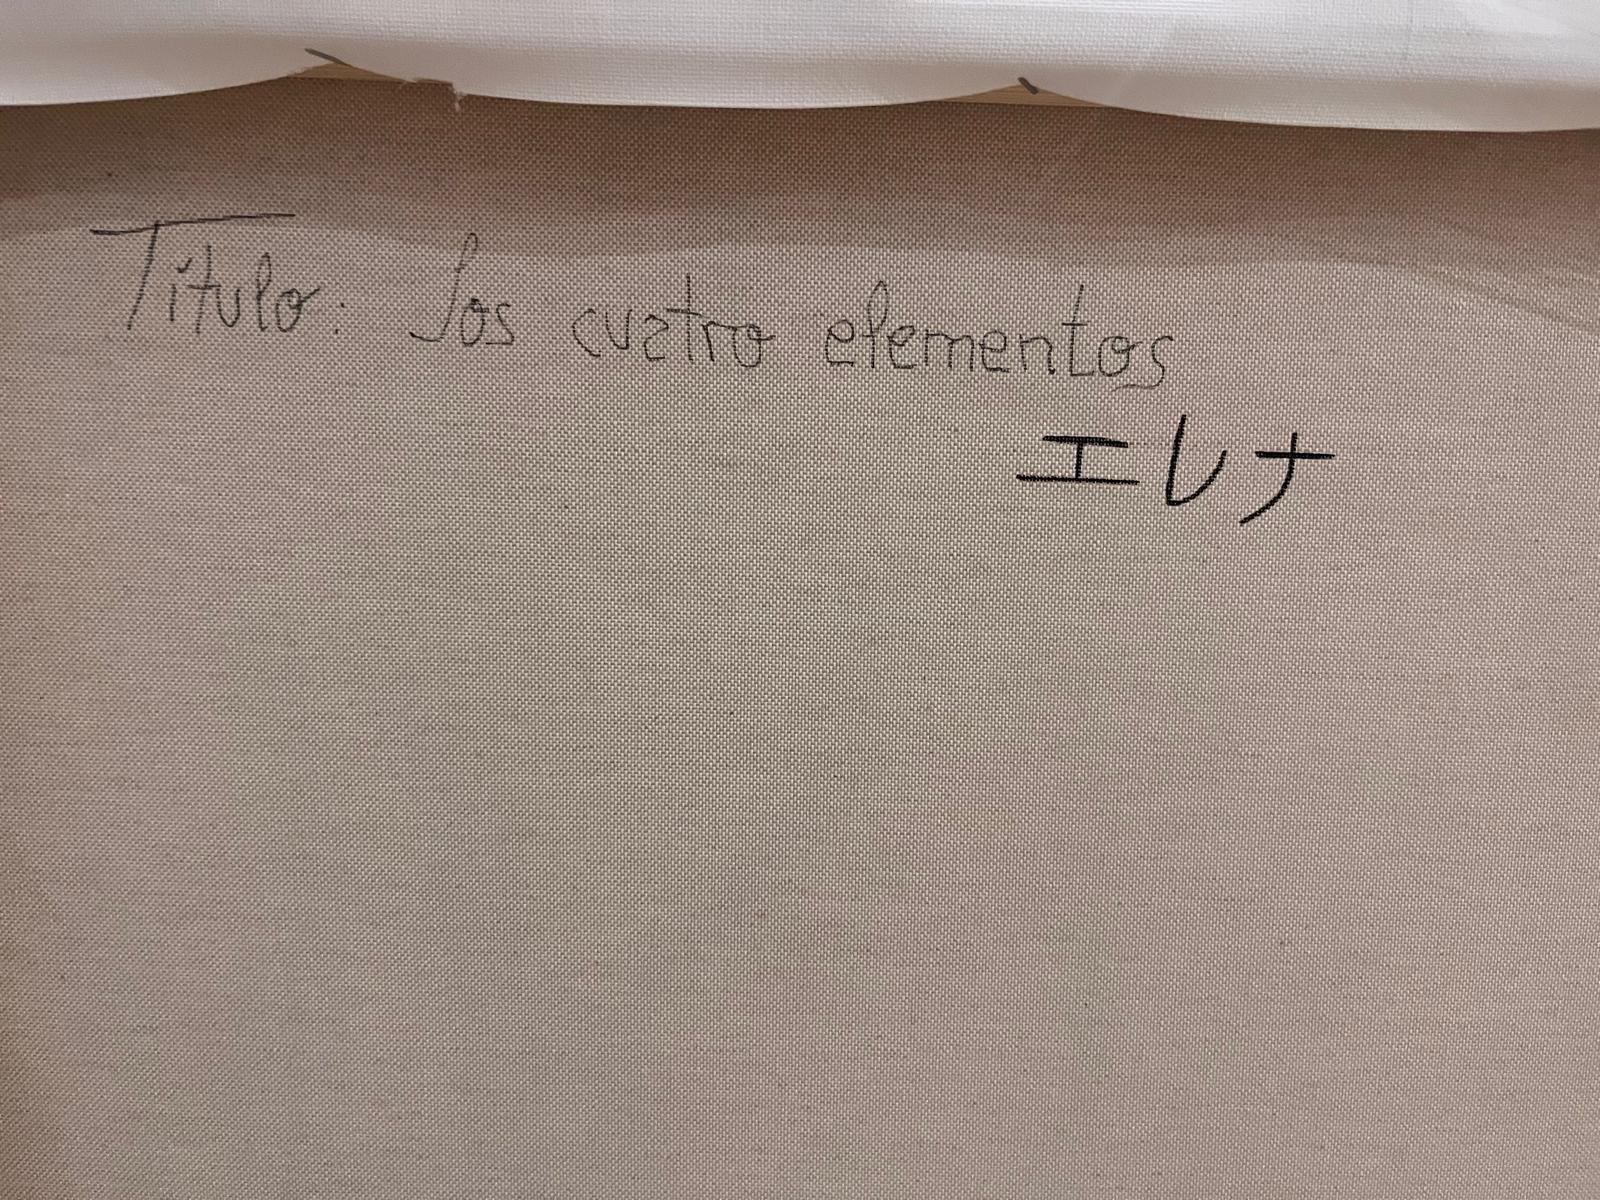 Título: Los cuatro elementos
エレナ